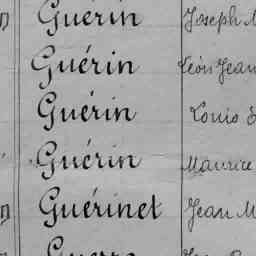 Guérin Joseph
Guérin Léon Jean
Guérin Louis
Guérin Maurice
Guérinet Jean M
Guerre